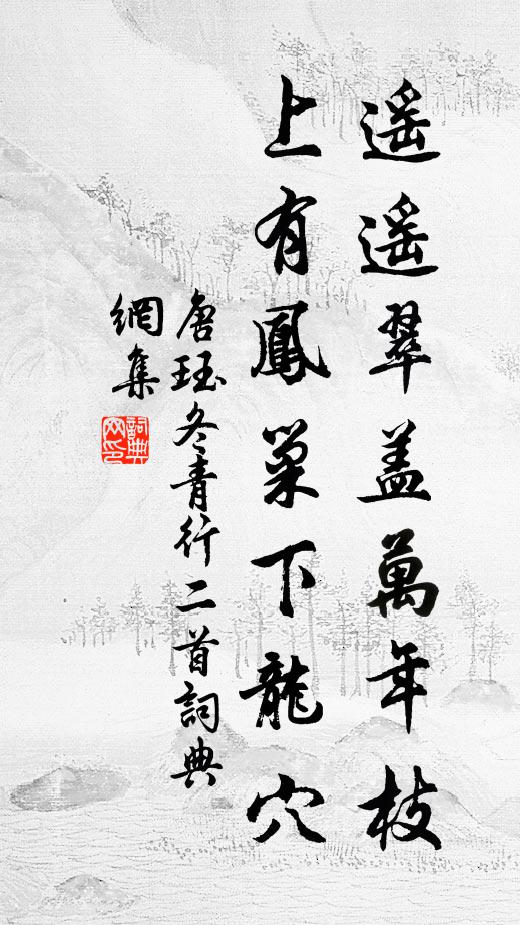 遥遥翠盖萬年枝
上有鳳巢下龍穴
唐珏冬青行二首詞典
網集
詞典
网印